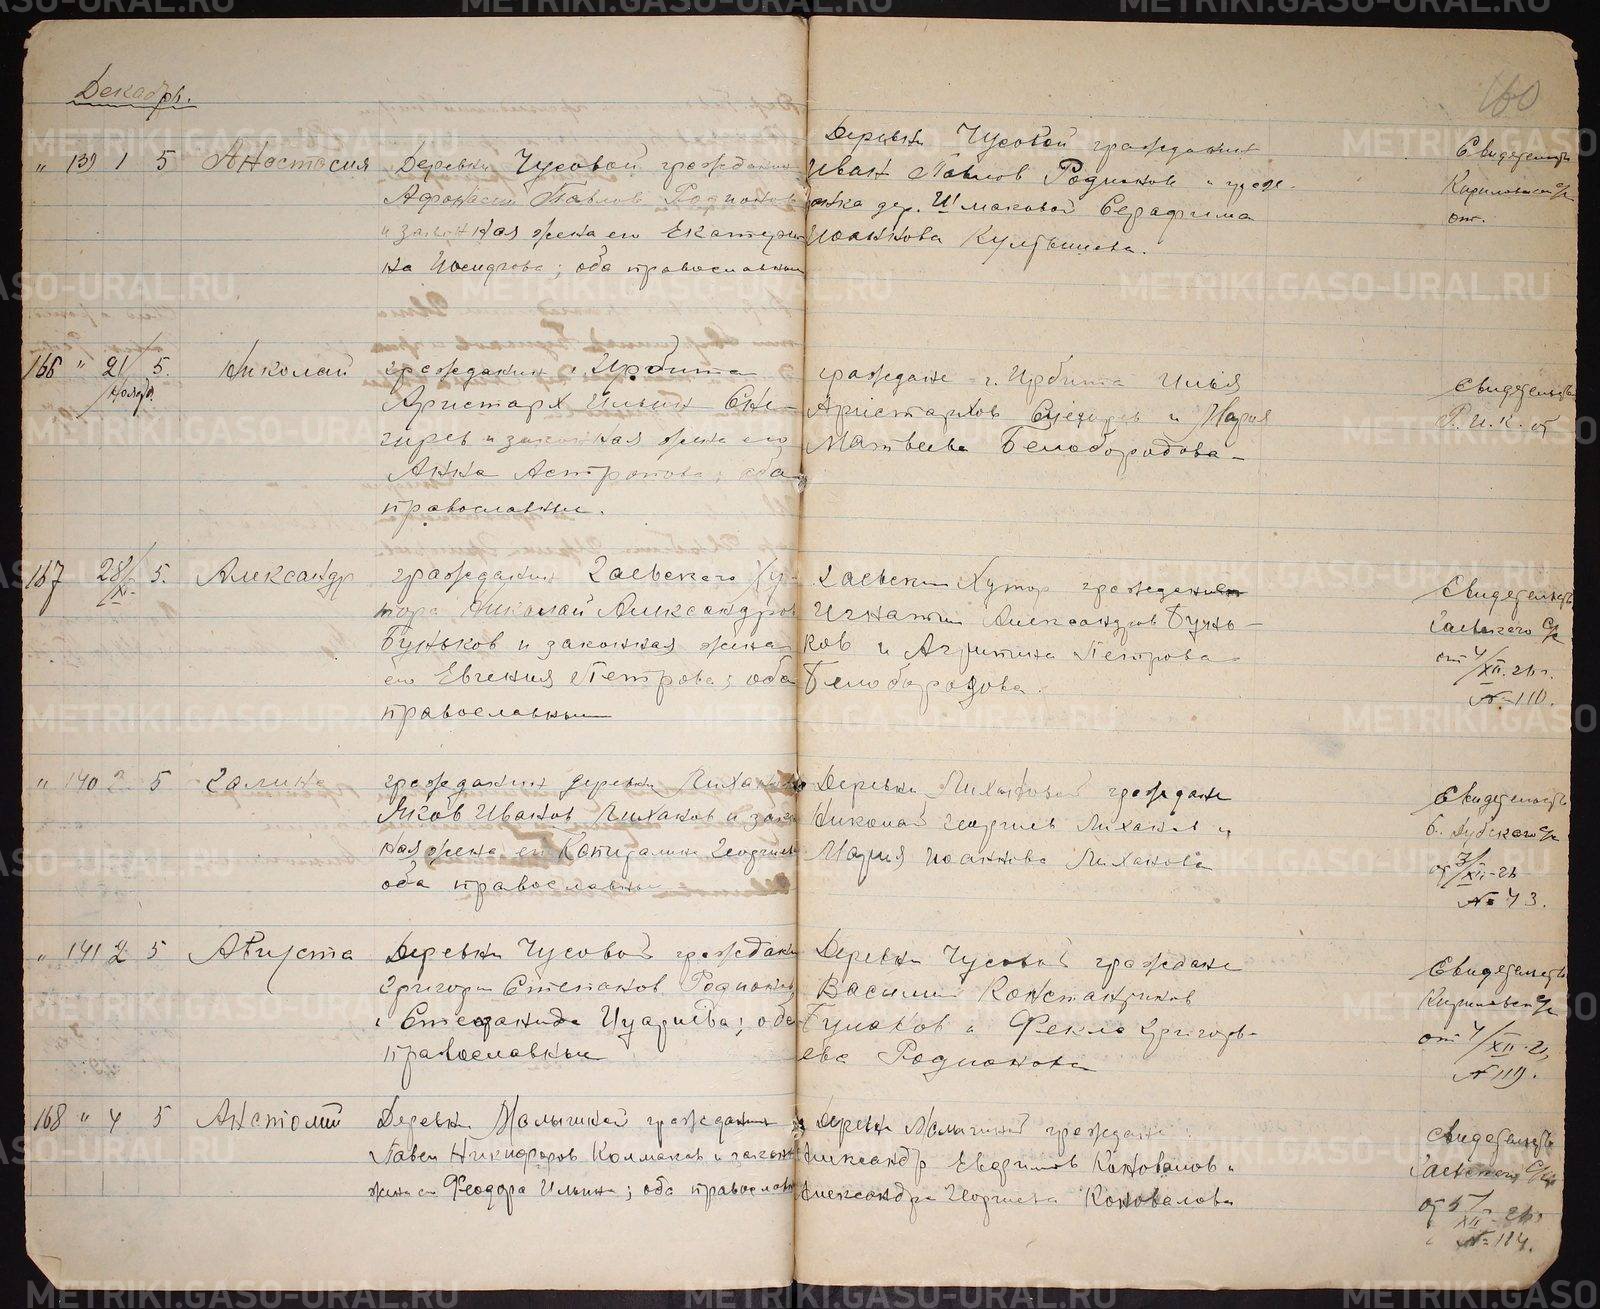 Декабрь.
160
" 139 1 5 Анастасия
Деревни Чусовой гражданин
Афонасий Павлов Родионов
и законная жена его Екатери-
на Иосифова; оба православныи
Деревни Чусовой гражданин
Иван Павлов Родионов и граж-
данка дер. Шмаковой Серафима
Иоаннова Культышева.
Свидетельство
от
166 " 21/ноября 5. Николай
гражданин г. Ирбита
Аристарх Ильин Сне-
гирев и законная жена его
Анна; оба
православные.
граждане г. Ирбита Илья
Аристархов Снегирев и Мария
Матвеева Белобородова
Свидетельство
Р.И.К. от
167 28/XI 5. Александр
гражданин Гаевского Ху-
тора Николай Александров
Буньков и законная жена
его Евгения Петрова; оба
православныи
Гаевский Хутор гражданин
Игнатий Александров Бунь-
ков и Петрова
Белобородова.
Свидетельство
Гаевского с/с
от 4/XII-26г.
№ 110.
" 140 2 5 Галина
гражданин деревни
Яков Иванов Лиханов и закон
ная жена его Георгиев
оба православны
Деревни граждане
Николай Георгиев Лиханов и
Мария Иоаннова Лиханова
Свидетельство
с/с
от 3/XII-26
№ 43.
" 141 2 5 Августа
Деревни Чусовой граждани
Григорий Степанов Родионов
и Стефанида; оба
православныи
Деревни Чусовой граждане
Василий Константинов
Булаков и Фекла Григорь-
ева Родионова
Свидетельство
с/с
от 4/XII-2
№ 119.
168 " 4 5 Анатолий
Деревни Малыгиной гражданин
Павел Никифоров Колмаков и законн
жена его Феодора Ильина; оба православ
Деревни Малыгиной граждане
Александр Евфимов Коновалов и
Александра Георгиева Коновалова
Свидетельство
Гаевского с/с
от 5/XII-26г
№ 114.